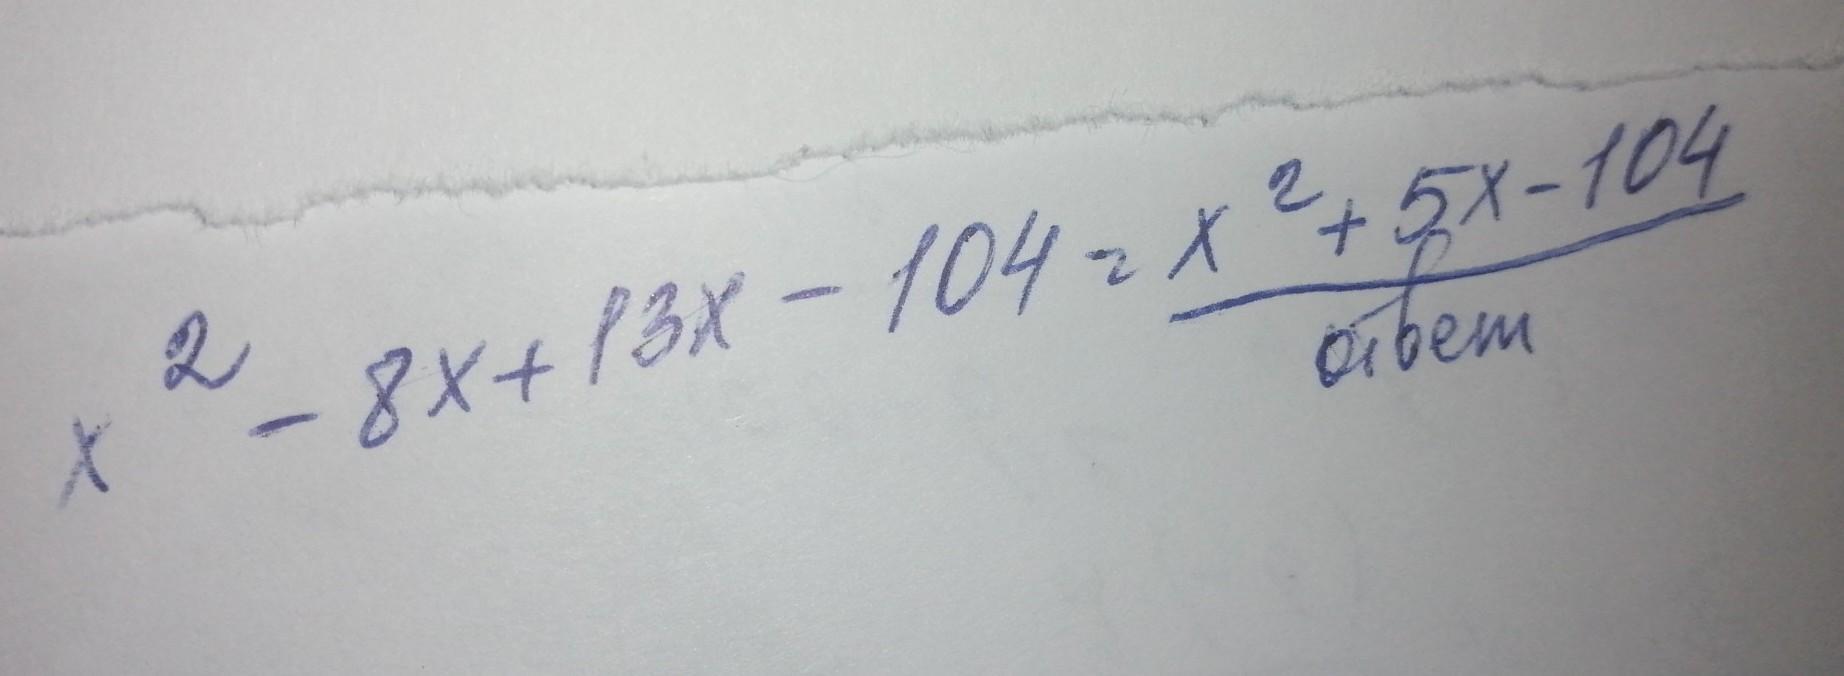 x² - 8x + 13x - 104 = x² + 5x - 104
ответ